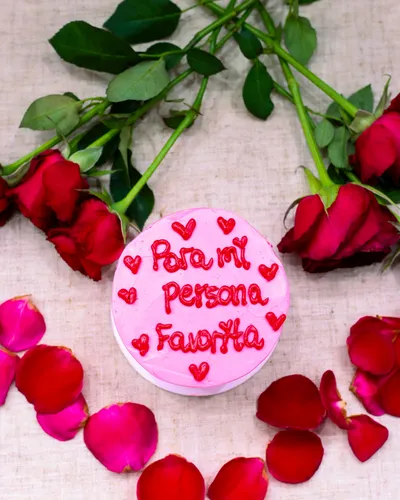 Para mi
persona
Favorita